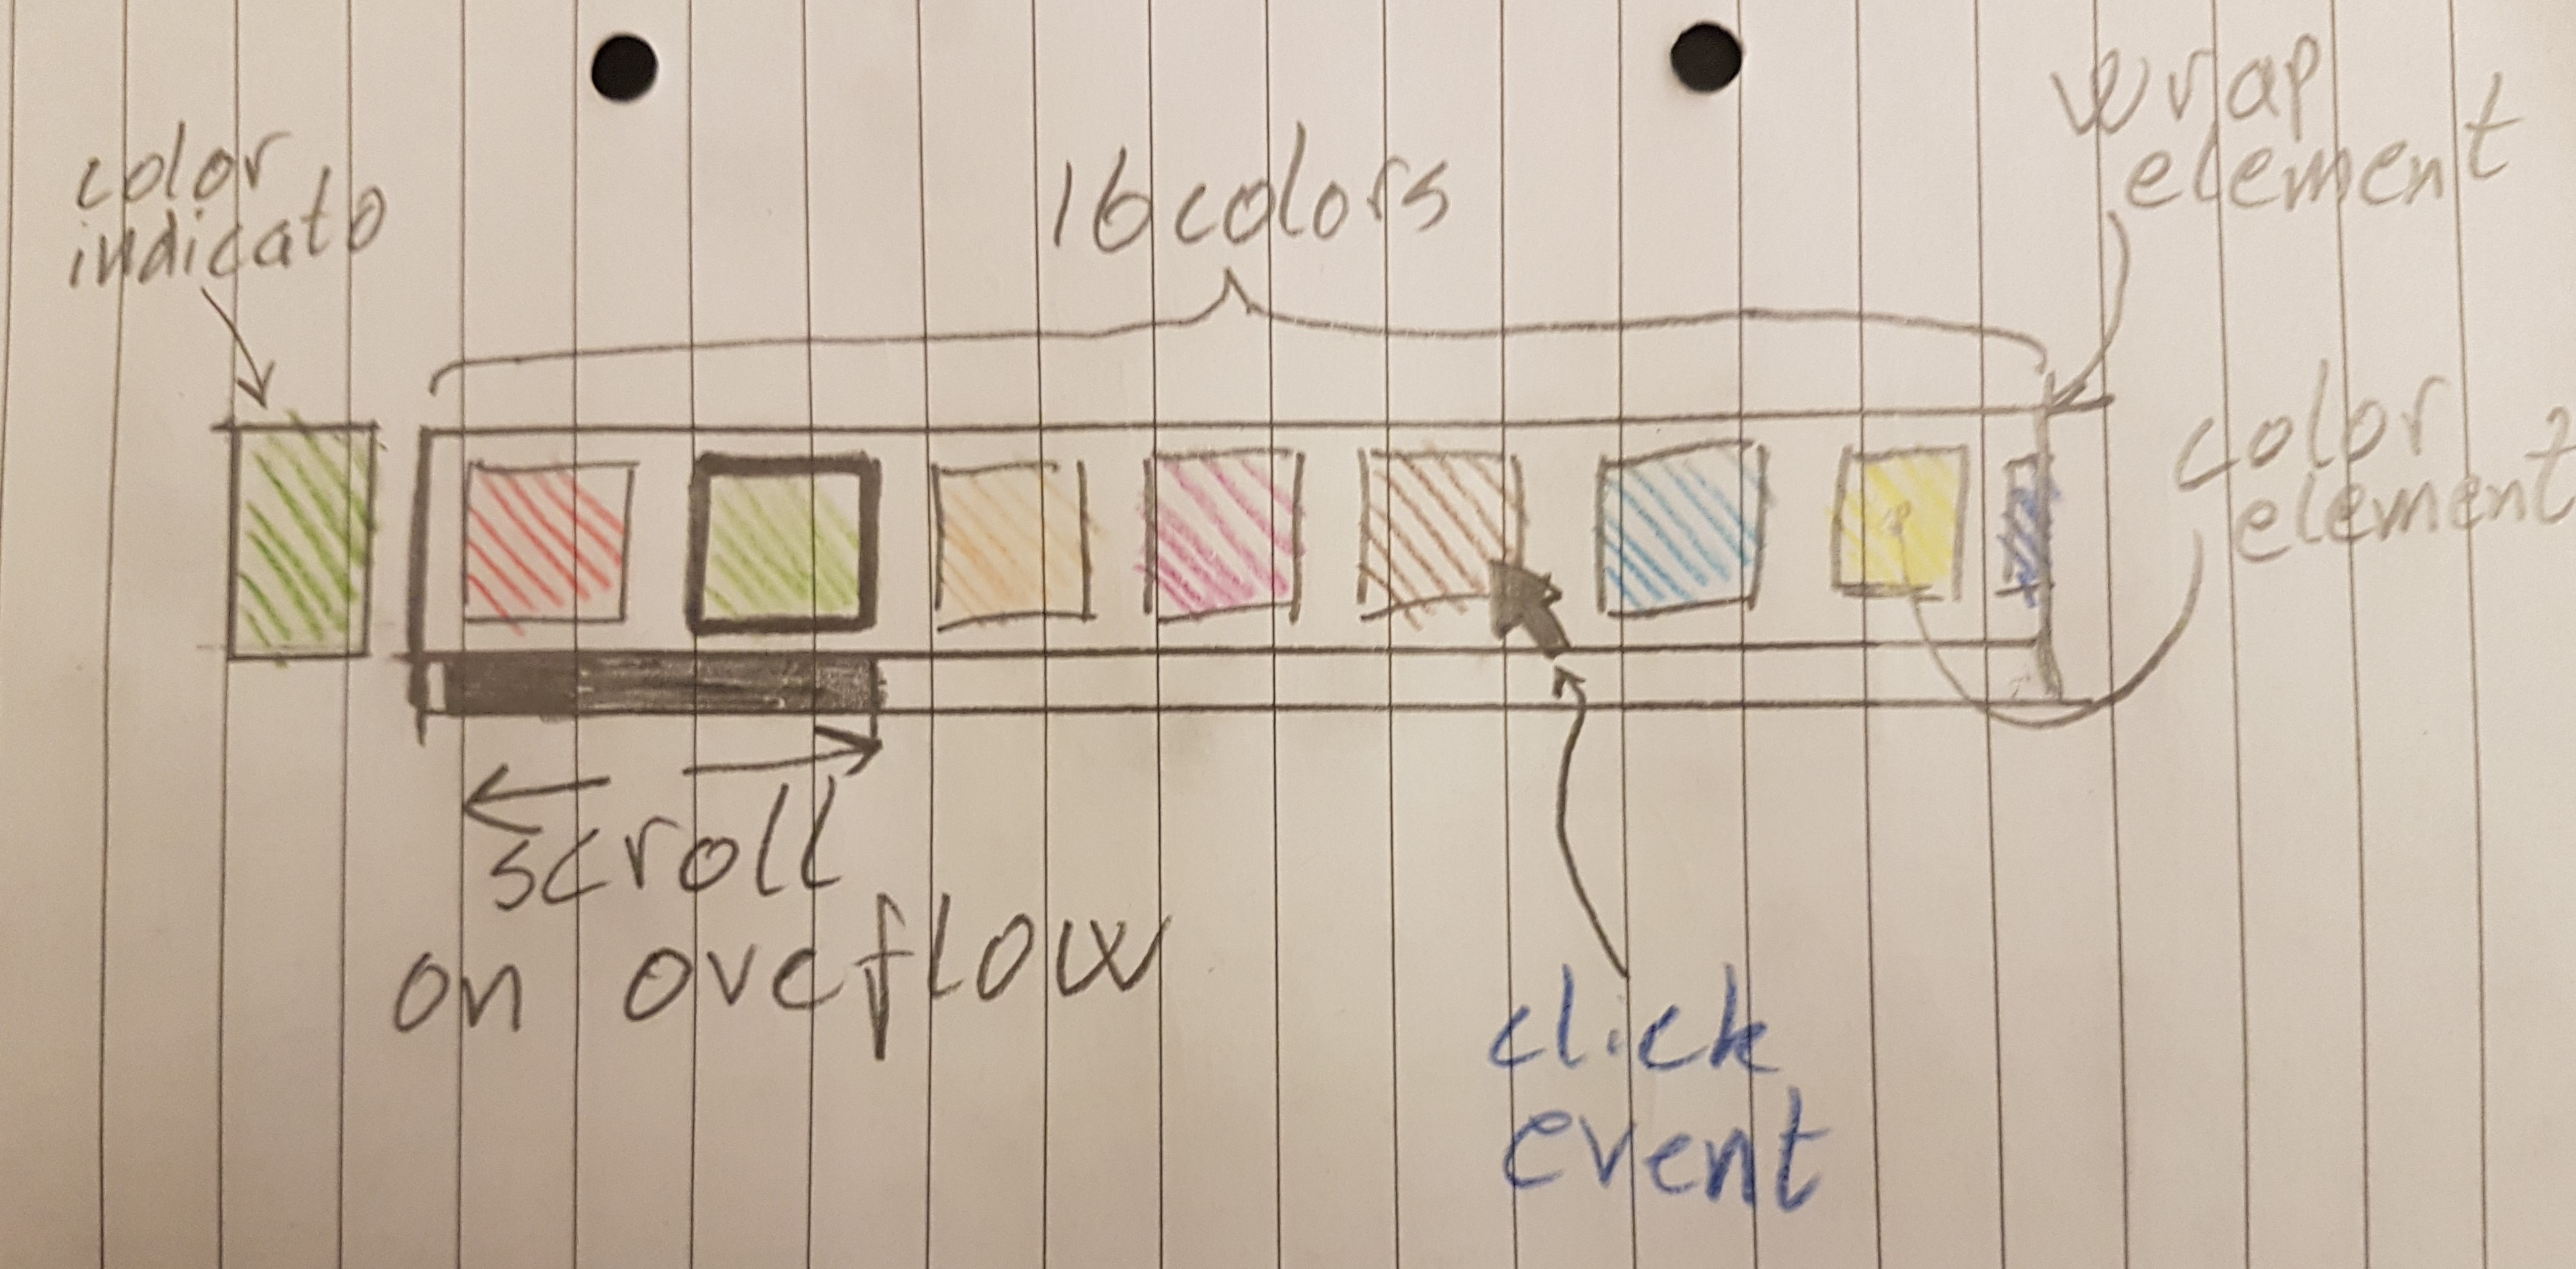 color
indicato
16 colors
wrap
element
color
element
scroll
on overflow
click
event